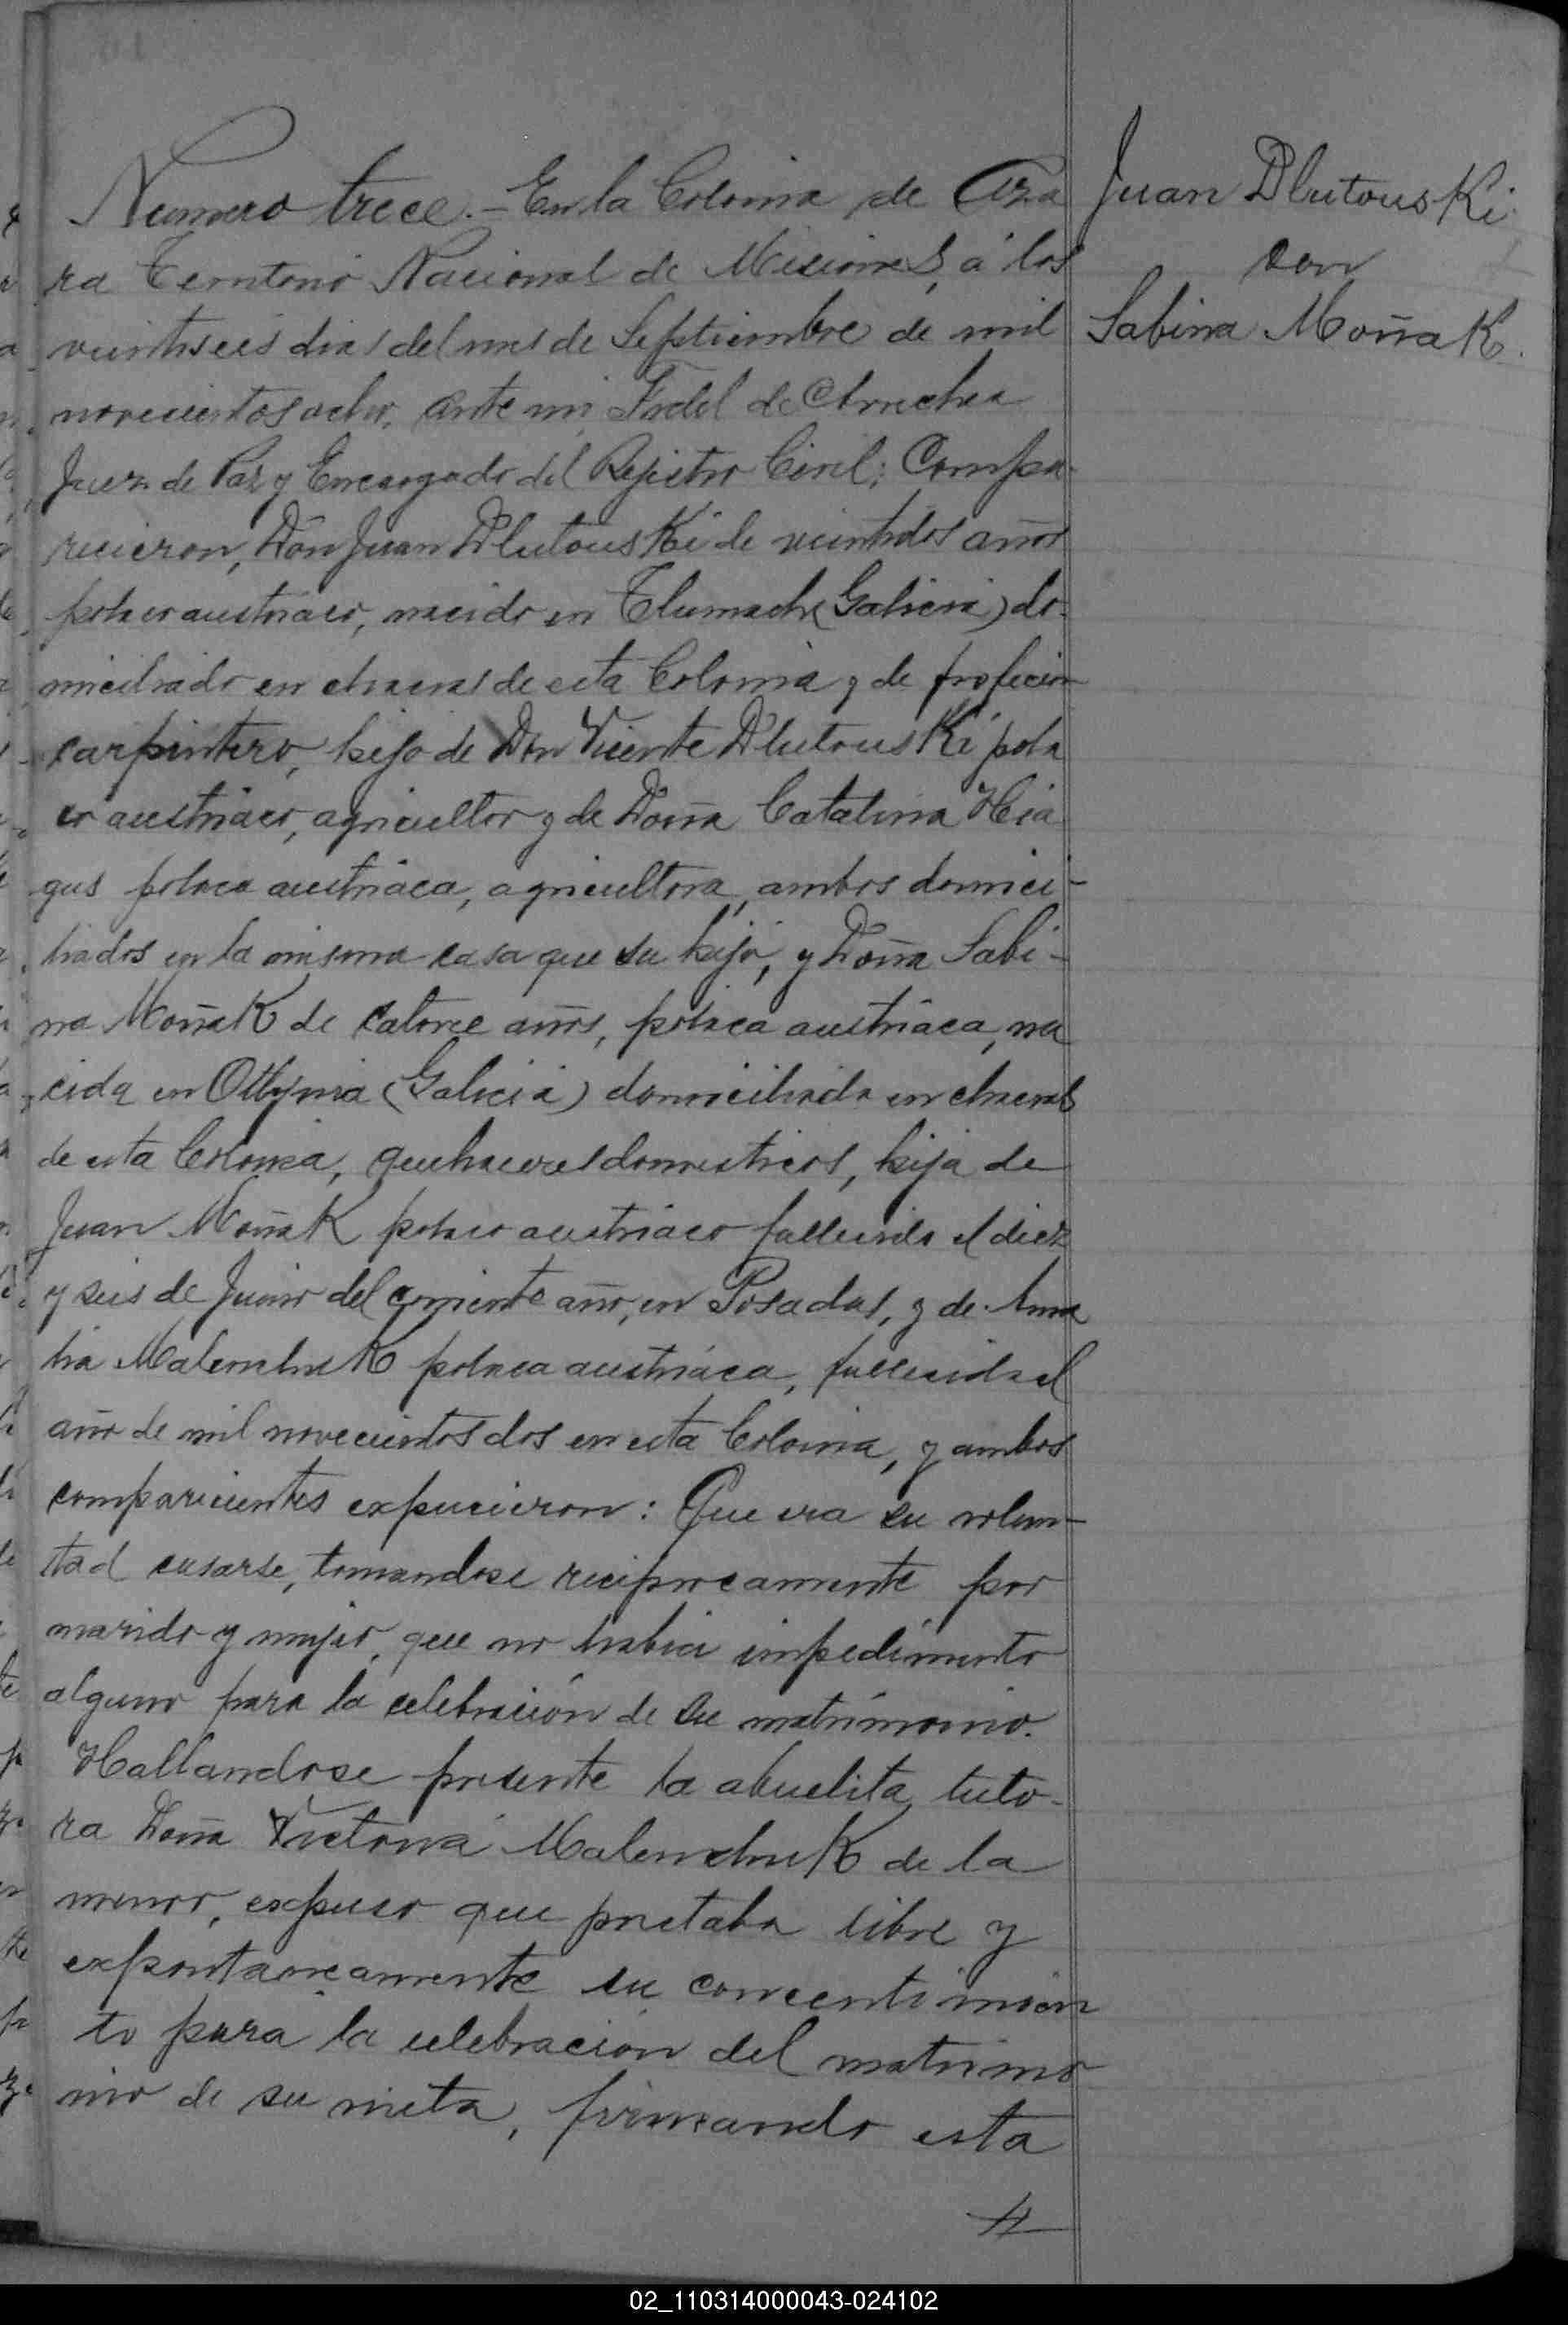 Numero trece.- En la Colonia de Aza
ra Territorio Nacional de Misiones, á los
veintiseis dias del mes de Septiembre de mil
novecientos ocho, ante mi Fidel de Arrechea
Juez de Paz y Encargado del Rejistro Civil; Compa-
recieron, Don Juan Dlutouski de veintidos años
polaco austriaco, nacido en Tlumach (Galicia) do-
miciliado en chacras de esta Colonia y de profecion
carpintero, hijo de Don Vicente Dlutouski pola
co austriaco, agricultor y de Doña Catalina Hia
gus polaca austriaca, agricultora, ambos domici-
liados en la misma casa que su hijo, y Doña Sabi-
na Moñak de catorce años, polaca austriaca, na
cida en Ottynia (Galicia) domiciliada en chacras
de esta Colonia, quehaceres domesticos, hija de
Juan Moñak polaco austriaco fallecido el diez
y seis de Junio del corriente año, en Posadas, y de Ana
lia Malenchuk polaca austriaca, fallecida el
año de mil novecientos dos en esta Colonia, y ambos
comparecientes expucieron: Que era su volun-
tad casarse, tomandose reciprocamente por
marido y mujer, que no habia impedimento
alguno para la celebracion de su matrimonio.
Hallandose presente la abuelita tuto-
ra Doña Victoria Malenchuk de la
menor, expuso que prestaba libre y
expontaneamente su concentimien
to para la celebracion del matrimo
nio de su nieta, firmando esta
Juan Dlutouski
con
Sabina Moñak.
02_110314000043-024102